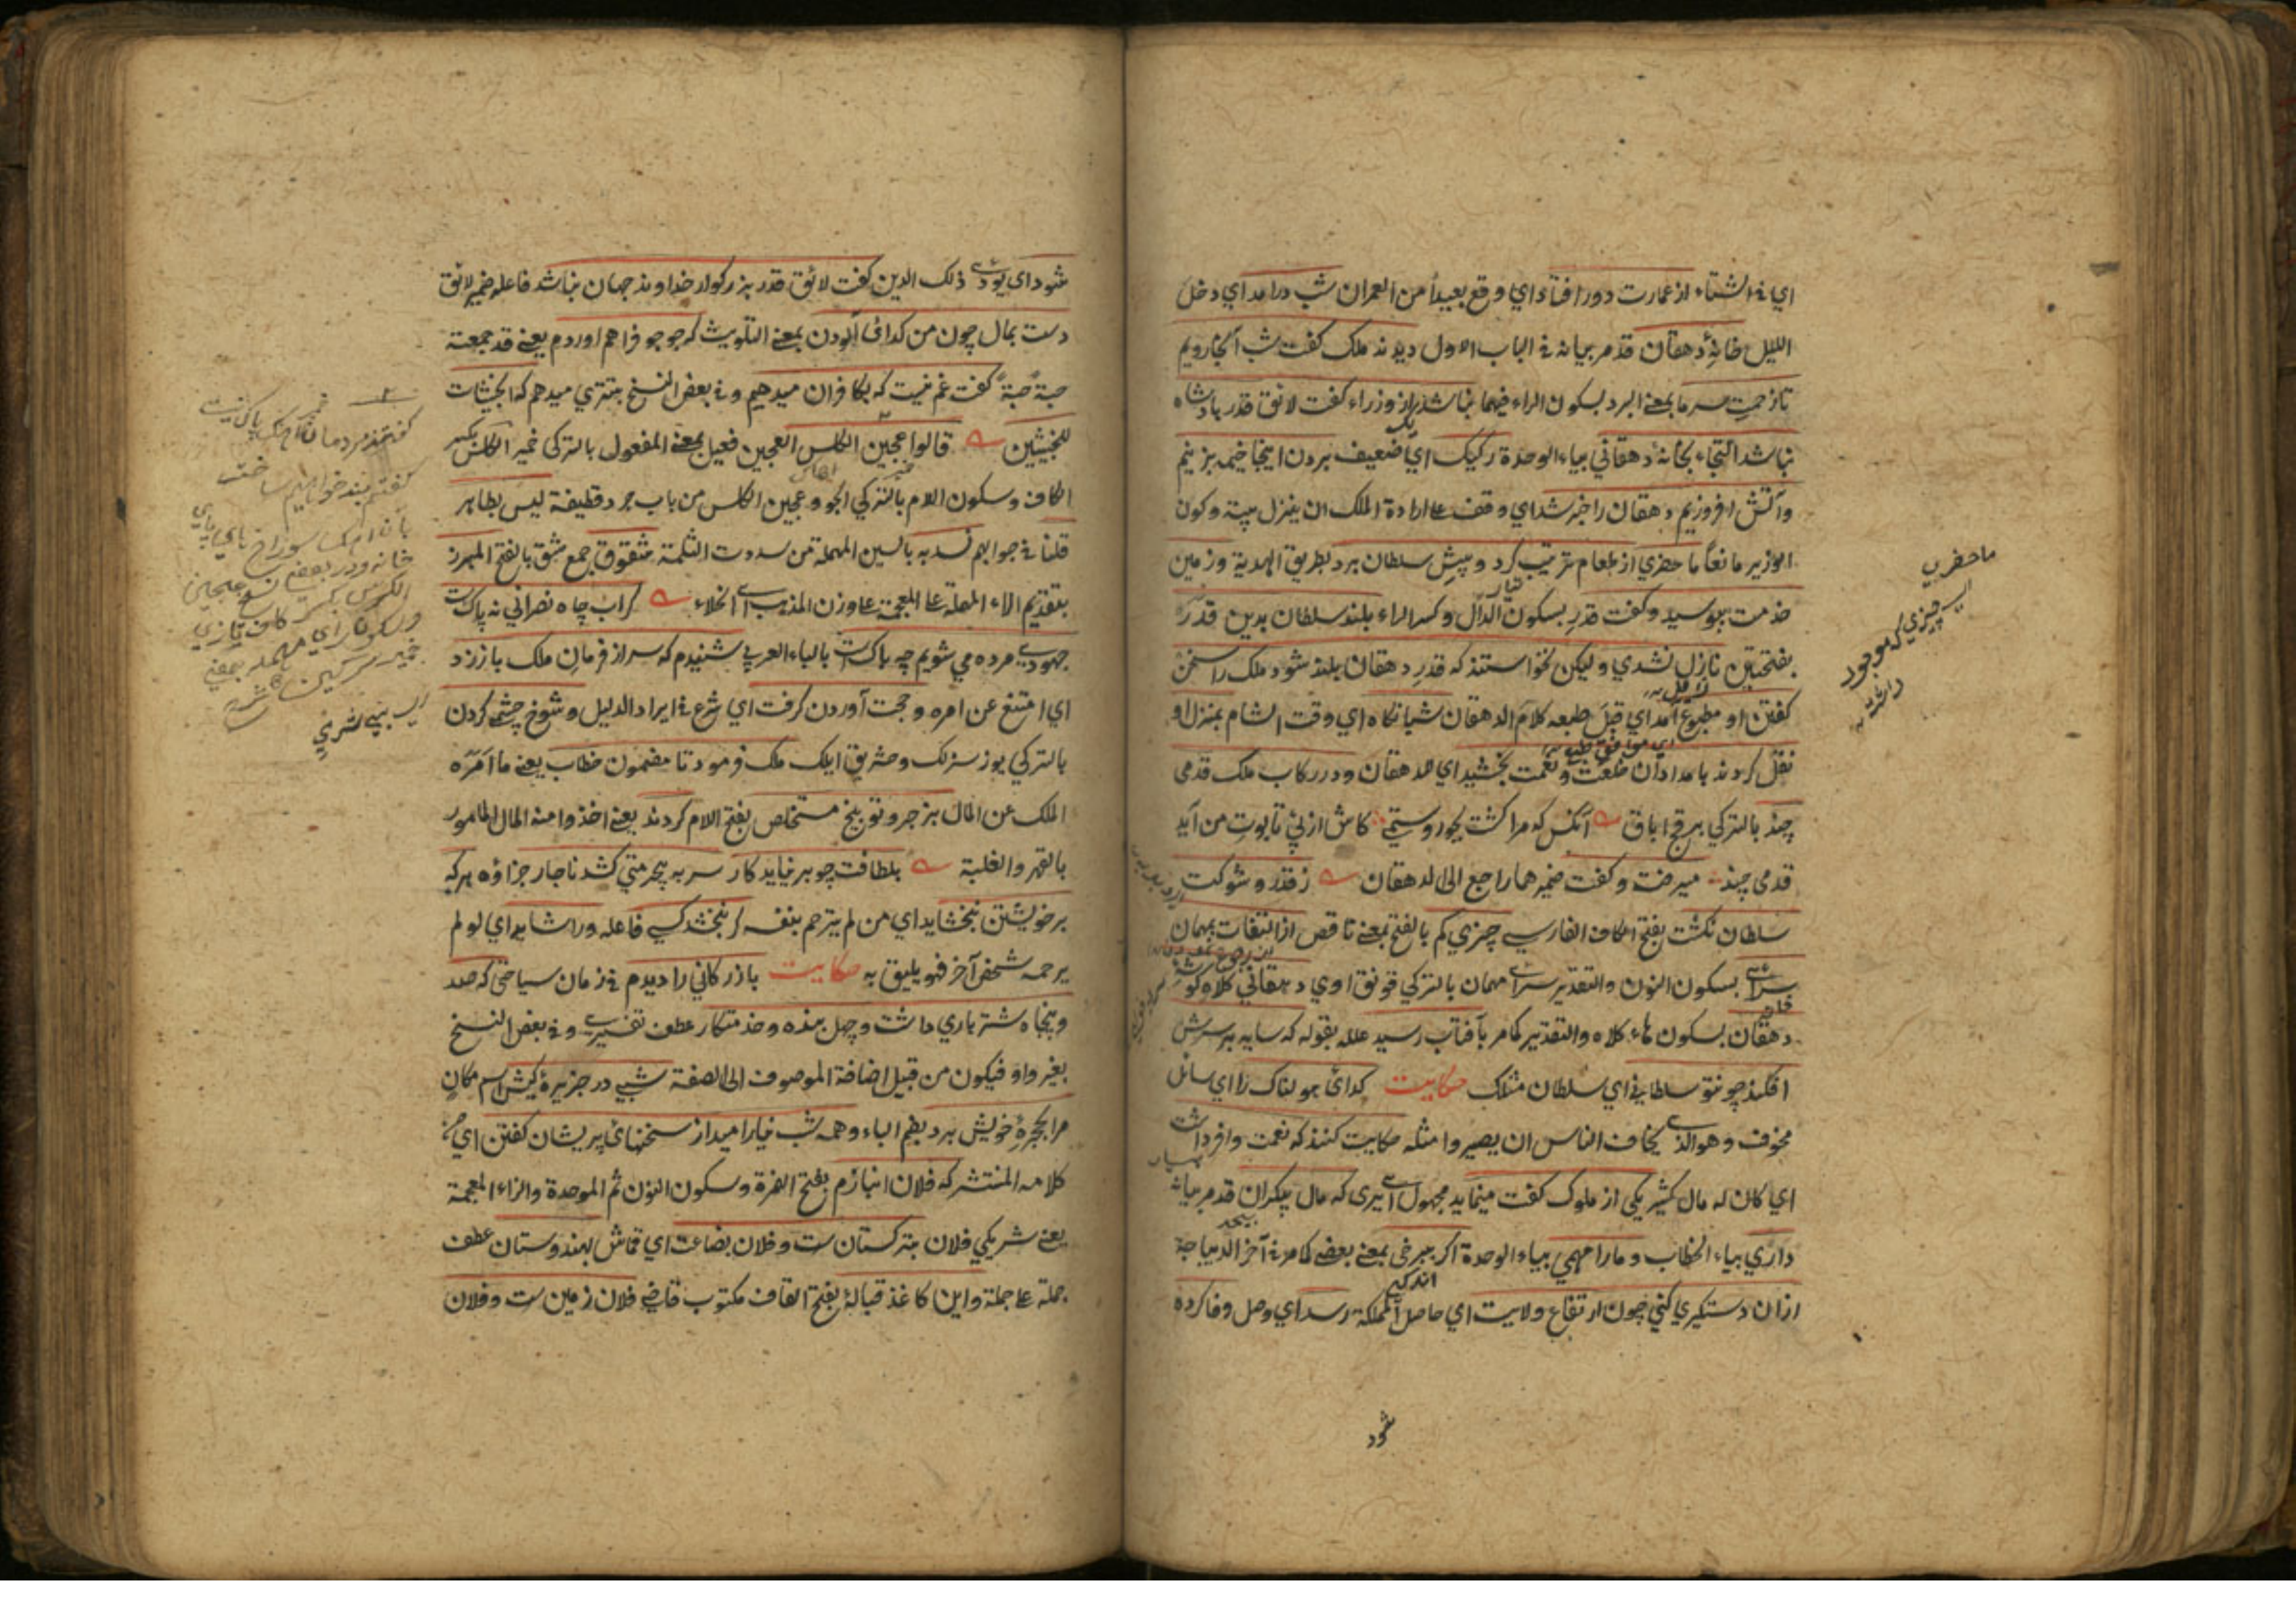 اي في الشتاء از عمارت دور افتاد اي وقع بعيدا من العمران شب درامد اي دخل
الليل خانۀ دهقان قد مر بيانه في الباب الاول ديدند ملك كفت شب آنجا رويم
تا زحمت سرما بمعنى البرد بسكون الراء فيهما نباشد يكي از وزراء كفت لائق قدر پادشاه
نباشد التجاء بخانۀ دهقاني بياء الوحدة ركيك اي ضعيف بردن اينجا خيمه بزنيم
وآتش افروزيم دهقان را خبر شد اي وقف على ارادة الملك ان ينزل بيته وكون
الوزير مانعا ما حضري از طعام ترتيب كرد و پيش سلطان برد بطريق الهدية وزمين
خدمت ببوسيد وكفت قدر بسكون الدال وكسر الراء بلند سلطان بدين قدر
بفتحتين نازل نشدي وليكن نخواستند كه قدر دهقان بلند شود ملك را سخن
كفتن او مطبوع آمد اي قبل طبعه كلام الدهقان شبانكاه اي وقت الشام بمنزل او
نقل كردند بامدادان خلعت ونعمت بخشيد اي الدهقان ودر ركاب ملك قدمي
چند بالتركي بر قاچ اياق آنكس كه مرا كشت بجور وستمي كاش از پي تابوت من آيد
قدمي چند ميرفت وكفت ضمير هما راجع الى الدهقان ز قدر و شوكت
سلطان نكشت بفتح الكاف الفارسي چيزي كم بالفتح بمعنى ناقص از التفات بمهمان
سراي بسكون النون والتقدير سراي مهمان بالتركي قونق اوي دهقاني كلاه كوشۀ
دهقان بسكون هاء كلاه والتقدير كما مر بآفتاب رسيد علله بقوله كه سايه بر سرش
افكند چو تو سلطاني اي سلطان مثلك حكايت كدائي هولناك را اي سائل
مخوف وهو الذي يخاف الناس ان يصيروا مثله حكايت كنند كه نعمت وافر داشت
اي كان له مال كثير يكي از ملوك كفت مينمايد مجهول اي يرى كه مال بيكران قد مر بيانه
داري بياء الخطاب ومارا مهمي بياء الوحدة اكر ببرخي بمعنى بعضي كما مر في آخر الديباجة
ازان دستكيري كني چون ارتفاع ولايت اي حاصل المملكة رسد اي وصل وفا كرده
شود
ما حضري
اي چيزي كه موجود
داشت
شود اي يؤدي ذلك الدين كفت لائق قدر بزركوار خداوند جهان نباشد فاعله ضمير لائق
دست بمال چون من كدائي آلودن بمعنى التلويث كه جو جو فراهم اوردم يعني قد جمعته
حبة حبة كفت غم نيست كه بكافران ميدهيم وفي بعض النسخ بتتري ميدهم كه الخبيثات
للخبيثين قالوا عجين الكلس العجين فعيل بمعنى المفعول بالتركي خمير الكلس بكسر
الكاف وسكون اللام بالتركي الچو وعجين الكلس من باب جرد قطيفة ليس بطاهر
قلنا في جوابهم نسد به بالسين المهملة من سددت الثلمة شقوق جمع شق بالفتح المبرز
بتقديم الراء المهملة على المعجمة على وزن المذهب اي الخلاء كر آب چاه نصراني نه پاكست
جهود مرده مي شويم چه باكست بالباء العربي شنيدم كه سر از فرمان ملك باز زد
اي امتنع عن امره و حجت آوردن كرفت اي شرع في ايراد الدليل و شوخ چشمي كردن
بالتركي يوزسزلك وحثريق ايلك ملك فرمود تا مضمون خطاب يعني ما امره
الملك عن المال بزجر وتوبيخ مستخلص بفتح اللام كردند يعني اخذوا منه المال المأمور
بالقهر والغلبة بلطافت چو بر نيايد كار سر به بيحرمتي كشد ناچار جزاؤه هر كه
بر خويشتن نبخشايد اي من لم يترحم بنفسه كر نبخشد كسي فاعله ورا شايد اي لو لم
يرحمه شخص آخر فهو يليق به حكايت بازركاني را ديدم في زمان سياحتي كه صد
وپنجاه شتر باري داشت و چهل بنده و خدمتكار عطف تفسيري وفي بعض النسخ
بغير واو فيكون من قبيل اضافة الموصوف الى الصفة شبي در جزيرۀ كيش اسم مكان
مرا بحجرۀ خويش برد بضم الباء و همه شب نيارا ميد از سخنهاي پريشان كفتن اي
كلامه المنتشر كه فلان انبازم بفتح الهمزة وسكون النون ثم الموحدة والزاء المعجمة
يعني شريكي فلان بتركستان ست و فلان بضاعت اي قماش بهندوستان عطف
جملة على جملة واين كاغذ قبالۀ بفتح القاف مكتوب قاضي فلان زمين ست و فلان